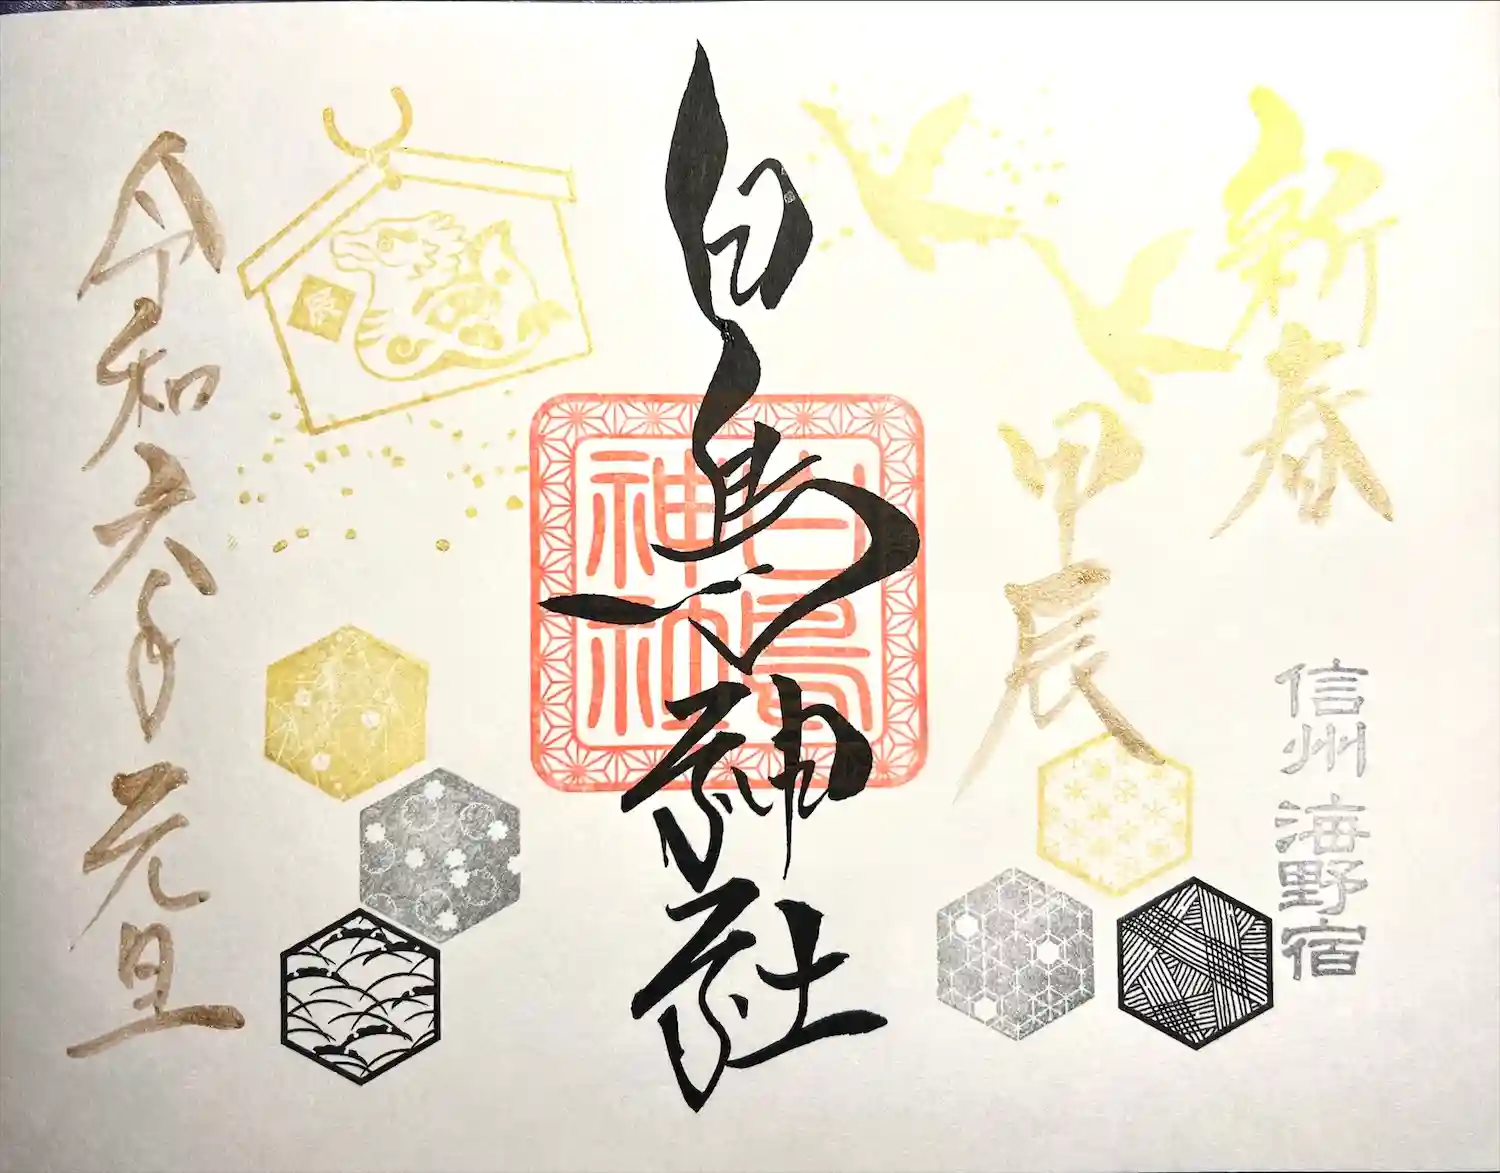 新春
甲辰
信州 海野宿
白鳥神社
白鳥
神社
令和六年元旦